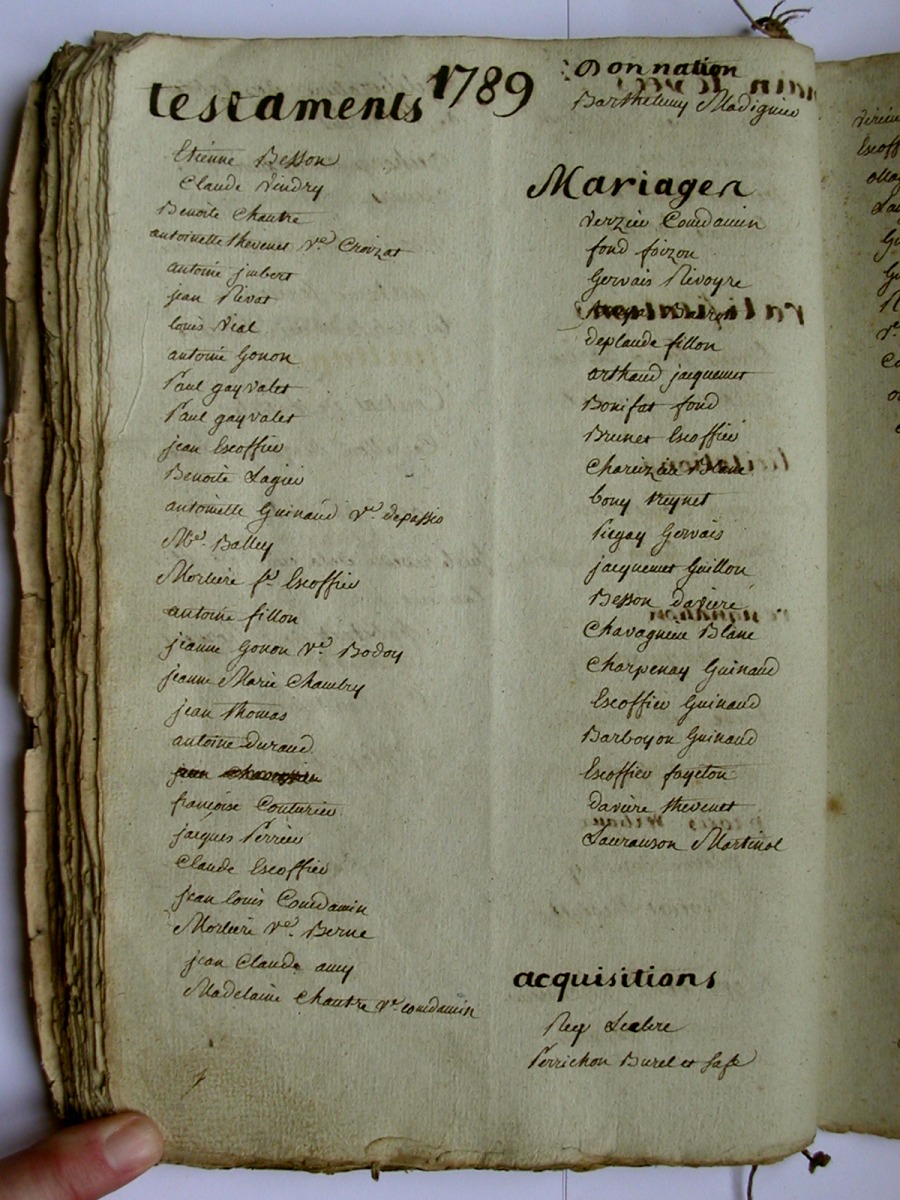 testaments 1789
Etienne Besson
Claude Vindry
Benoite Chautre
antoinette thevenet Ve Croizat
antoine jmbert
jean Rivat
louis Vial
antoine Gonon
Paul gayvalet
Paul gayvalet
jean Escoffier
Benoite Lagier
antoinette Guinaud Ve
Me. Balley
Morliere fe Escoffier
antoine fillon
jeanne Gonon Ve Bodoy
jeanne Marie Chambry
jean thomas
antoine Duraud
jean
françoise Couturier
jacques Perrier
Claude Escoffier
jean louis Coundamin
Morliere Ve. Berne
jean Claude amy
Madelaine Chautre Ve coundamin
Donnation
Barthelemy Madignier
Mariages
Verzier Coundamin
fond foizon
Gervais Rivoyre
deplaude fillon
arthaud jacquemet
Bonifat fond
Brunet Escoffié
Chareizieu Blanc
bony Reynet
Piegay Gervais
jacquemet Guillon
Besson daviere
Chavagneux Blanc
Charpenay Guinaud
Escoffier Guinaud
Barboyon Guinaud
Escoffier fayeton
daviere thevenet
Lauranson Martinol
acquisitions
Rey
Perrichon Burel et